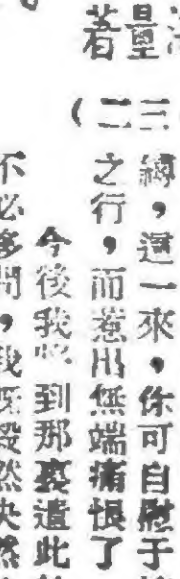 若量
(二三
，這一來，你可自慰于
之行，而惹出無端痛恨了
今後我將到那裏遣此
不必多問，我既毅然決然